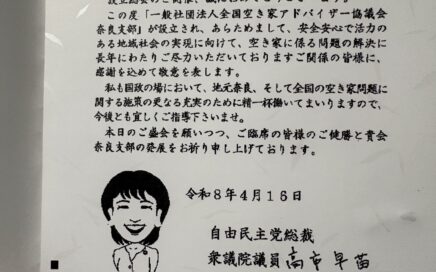 この度「一般社団法人全国空き家アドバイザー協議会
奈良支部」が設立され、あらためまして、安全安心で活力の
ある地域社会の実現に向けて、空き家に係る問題の解決に
長年にわたりご尽力いただいておりますご関係の皆様に、
感謝を込めて敬意を表します。
私も国政の場において、地元奈良、そして全国の空き家問題に
関する施策の更なる充実のために精一杯働いてまいりますので、
今後とも宜しくご指導下さいませ。
本日のご盛会を願いつつ、ご臨席の皆様のご健勝と貴会
奈良支部の発展をお祈り申し上げております。
令和8年4月16日
自由民主党総裁
衆議院議員 高市早苗